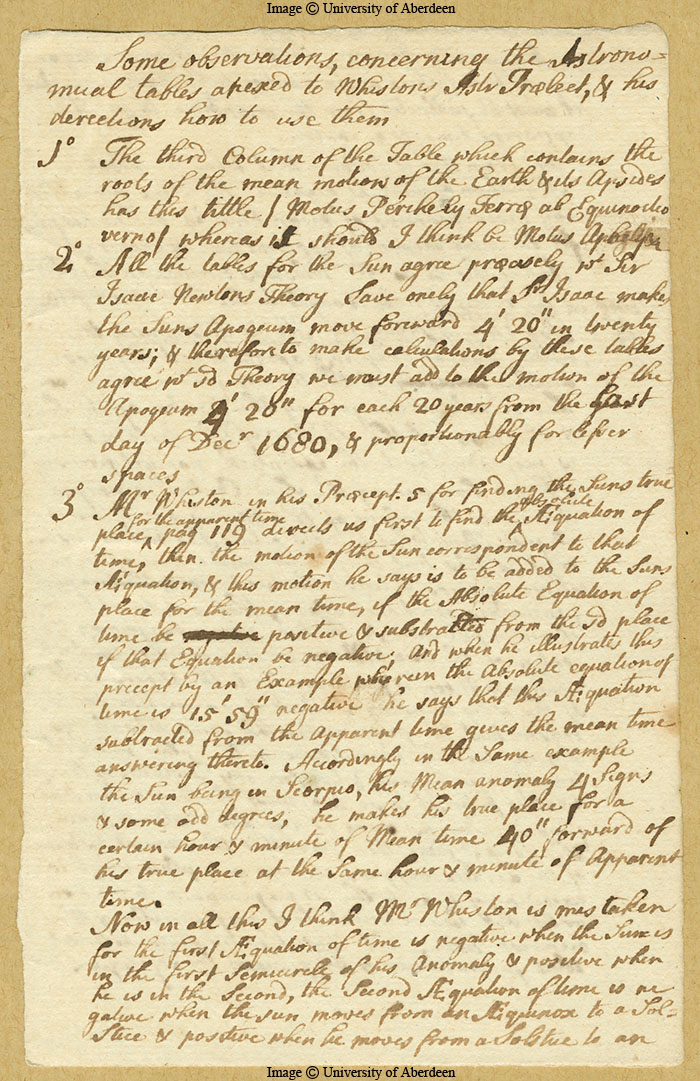 Image © University of Aberdeen
Some observations, concerning the Astrono=
mical tables anexed to Whistons Astr Prælect, & his
derections how to use them
1° The third Column of the Table which contains the
roots of the mean motion of the Earth & its Apsides
has this tittle / Motus Perihelij Terræ ab Equinoctio
verno / whereas it should I think be Motus Aphelij
2° All the tables for the Sun agree precisely wt Sir
Isaac Newtons Theory Save onely that Sr Isaac makes
the Suns Apogeum move forward 4' 20" in twenty
years; & therefore to make calculations by these tables
agree wt sd Theory we must add to the motion of the
Apogeum 4' 20" for each 20 years from the last
day of Decr 1680, & proportionably for lesser
spaces
3° Mr Whiston in his Præcept. 5 for finding the Suns true
place, for the apparent time pag 119 directs us first to find the Absolute Æquation of
time, then the motion of the Sun correspondent to that
Æquation, & this motion he says is to be added to the Suns
place for the mean time, if the Absolute Equation of
time be negative positive & substracted from the sd place
if that Equation be negative; And when he illustrates this
precept by an Example wherein the Absolute equation of
time is 15' 59" negative he says that this Æquation
subtracted from the Apparent time gives the mean time
answering thereto. Accordingly in the Same example
the Sun being in Scorpio, his Mean anomaly 4 Signs
& some odd degrees, he makes his true place for a
certain hour & minute of Mean time 40" forward of
his true place at the Same hour & minute of Apparent
time.
Now in all this I think Mr Whiston is mistaken
for the first Æquation of time is negative when the Sun is
in the first Semicircle of his Anomaly & positive when
he is in the Second, the Second Æquation of time is ne
gative when the sun moves from an Æquinox to a Sol=
stice & positive when he moves from a Solstice to an
Image © University of Aberdeen